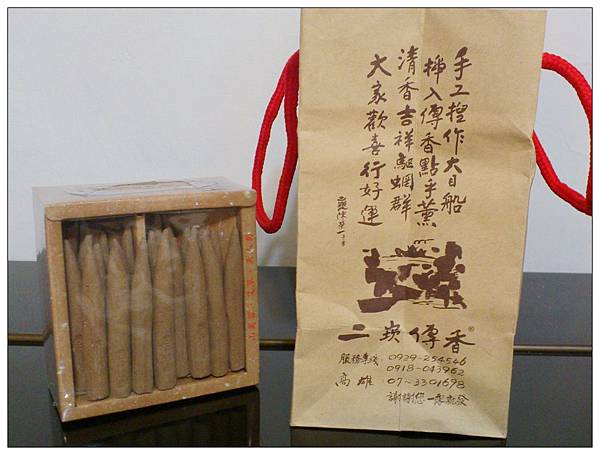 手工捏作大目船
插入傳香點乎薰
清香吉祥驅蚊群
大家歡喜行好運
二崁傳香®
服務專線: 0929-254546
0918-043962
高雄 07-3301698
謝謝您一路順發